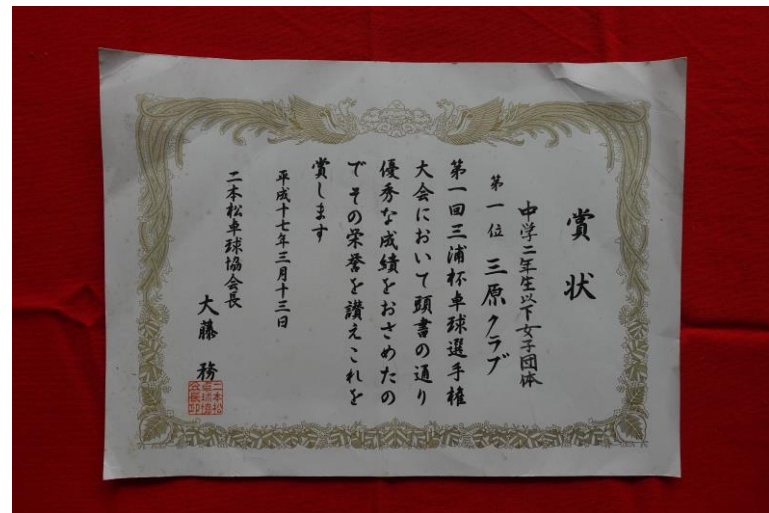 賞状
中学二年生以下女子団体
第一位 三原クラブ
第一回三浦杯卓球選手権
大会において頭書の通り
優秀な成績をおさめたの
でその栄誉を讃えこれを
賞します
平成十七年三月十三日
二本松卓球協会長
大藤 務
二本松
卓球協
会長印